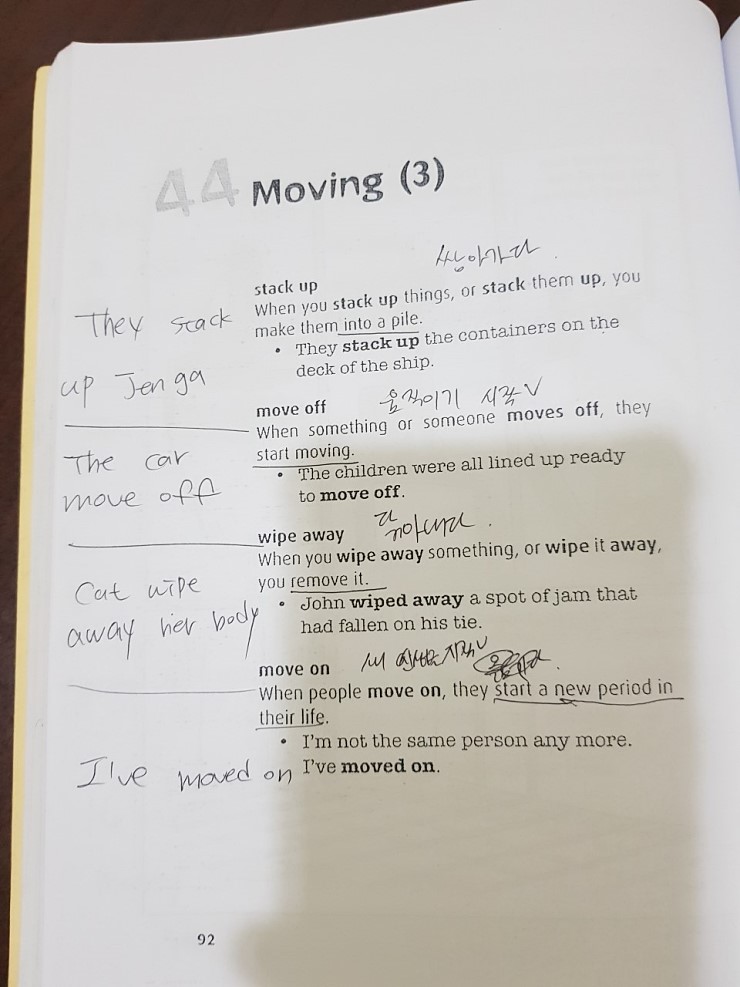 44 Moving (3)
쌓아가다.
stack up
When you stack up things, or stack them up, you
make them into a pile.
• They stack up the containers on the
deck of the ship.
They stack
up Jenga
move off 움직이기 시작
When something or someone moves off, they
start moving.
• The children were all lined up ready
to move off.
The car
move off
wipe away
When you wipe away something, or wipe it away,
you remove it.
• John wiped away a spot of jam that
had fallen on his tie.
Cat wipe
away her body
move on 새
When people move on, they start a new period in
their life.
• I'm not the same person any more.
I've moved on.
I've moved on
92